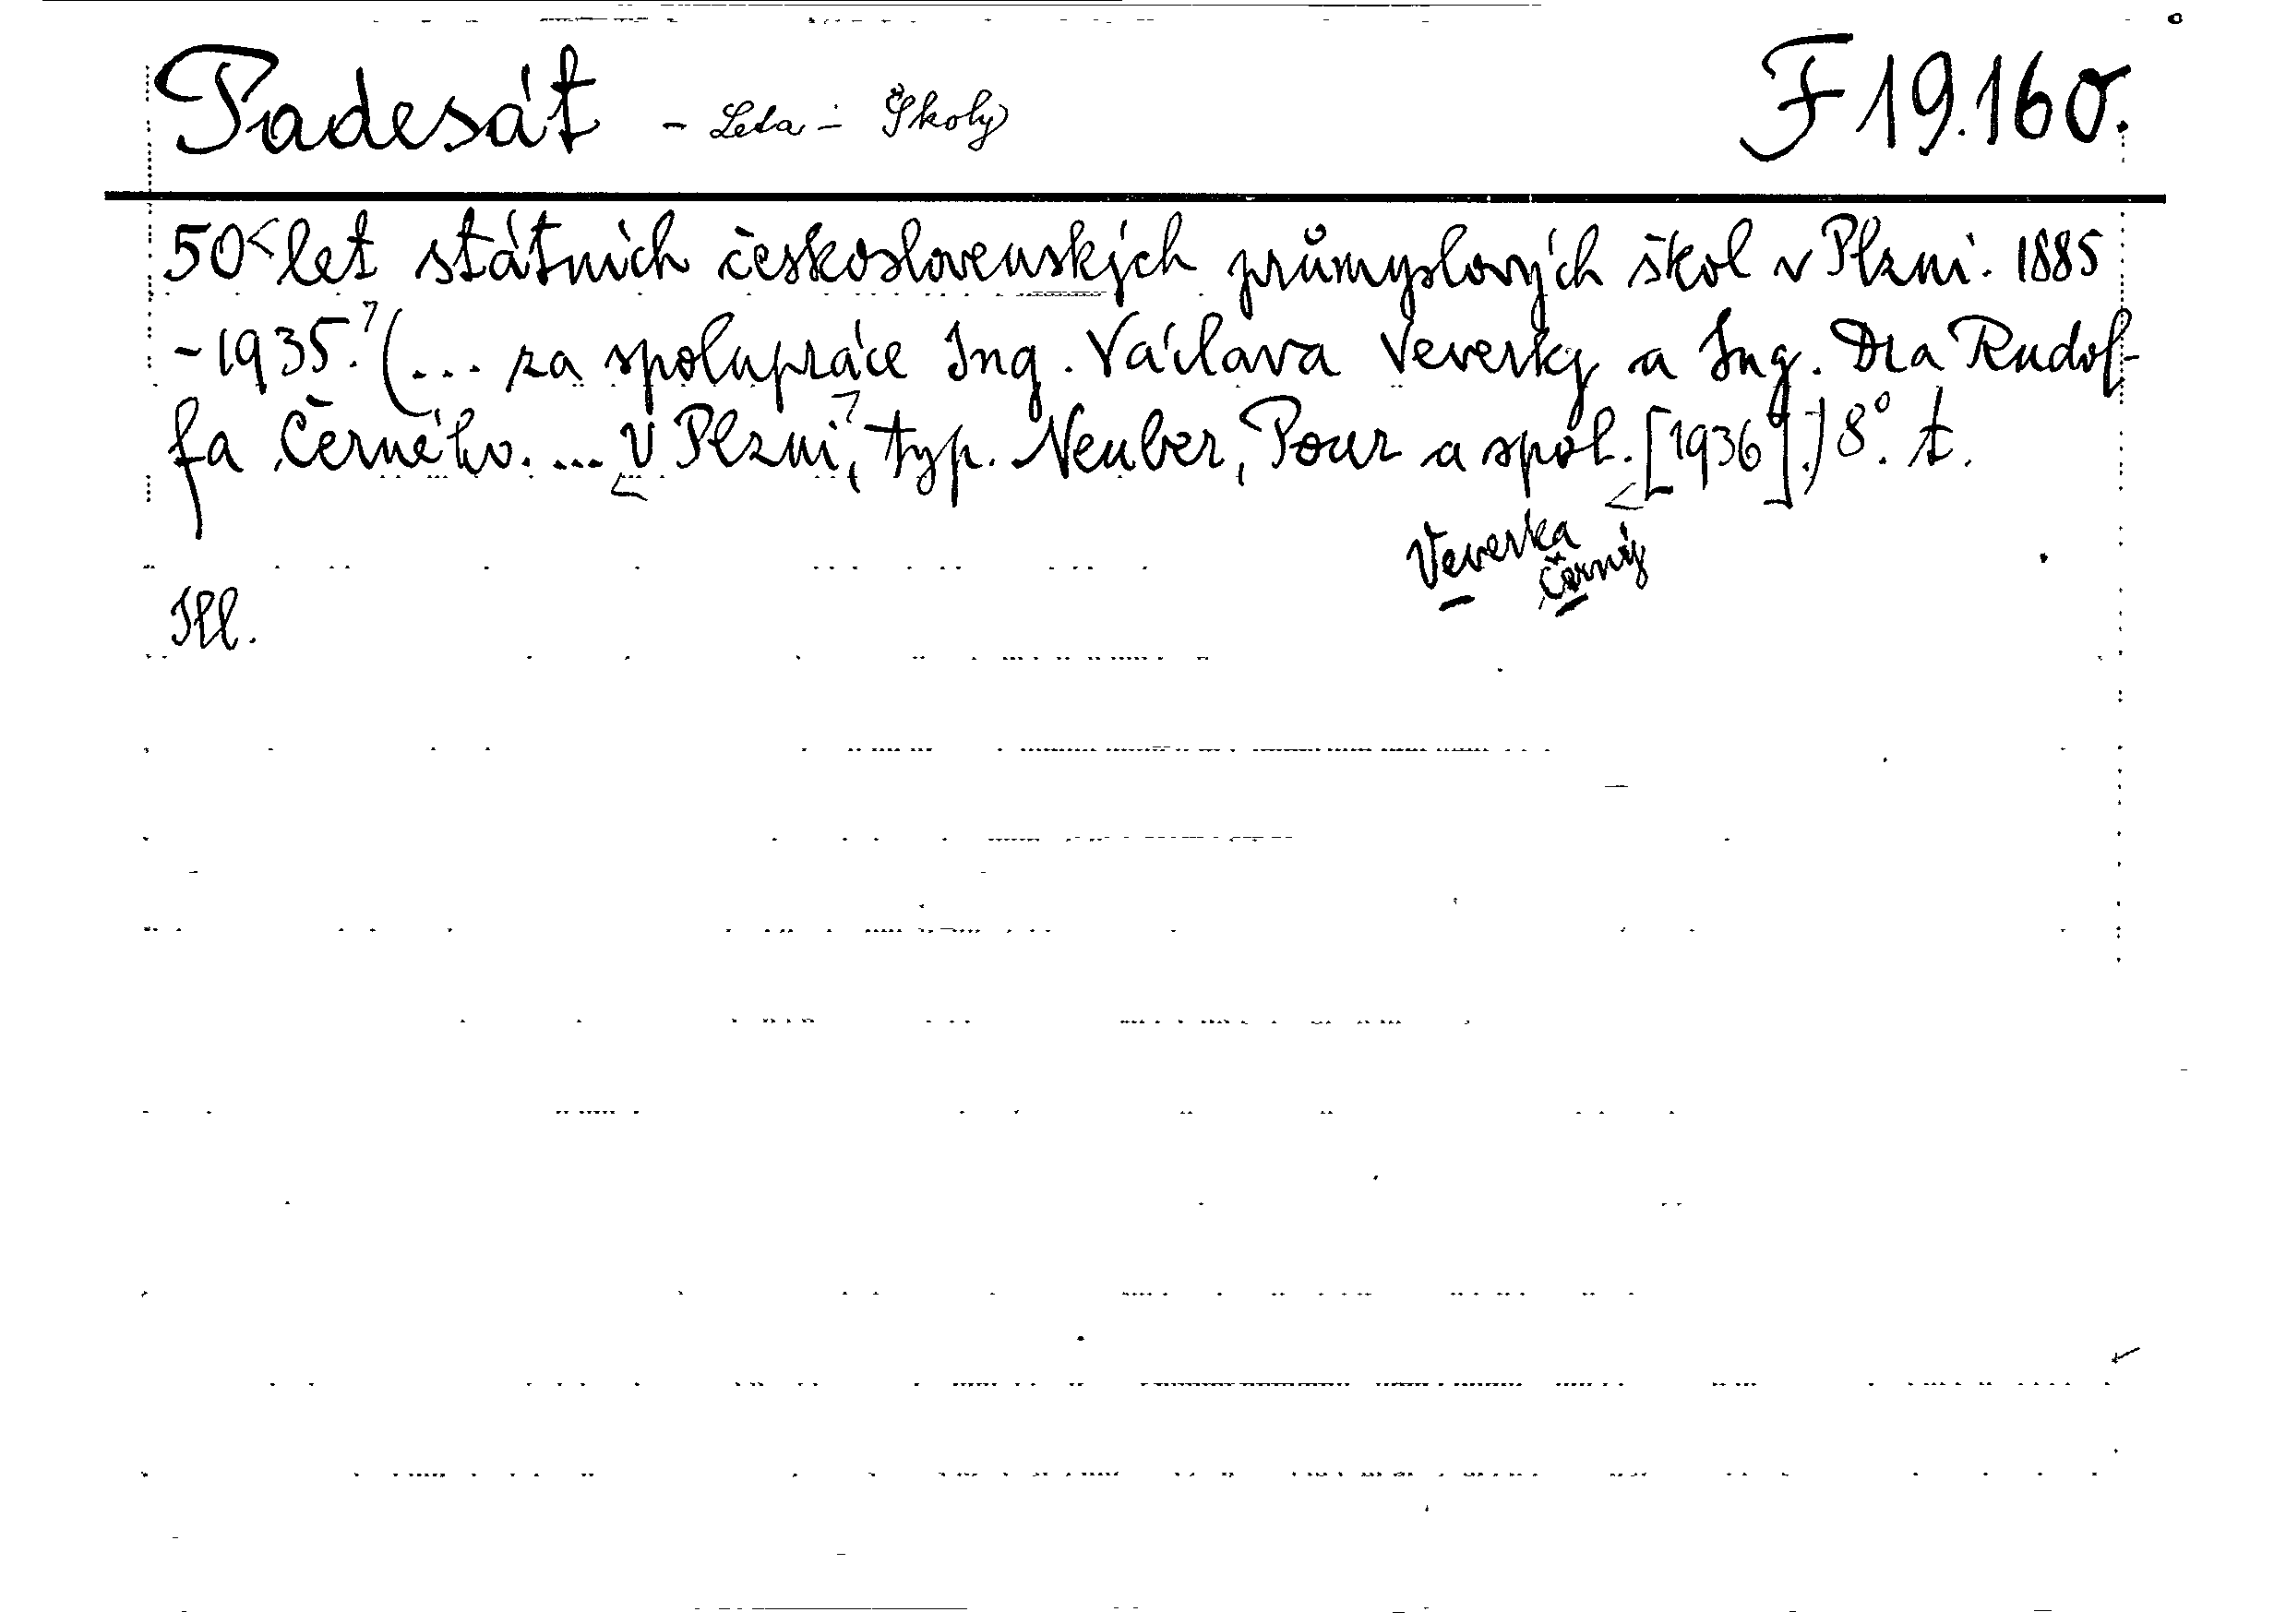 Padesát - Leta - Školy F 19.160.
50 let státních československých průmyslových škol v Plzni. 1885
-1935. (... za spolupráce Ing. Václava Veverky a Ing. Dra Rudol-
fa Černého. ... V Plzni, typ. Neuber, Pour a spol. [1936].) 8°. t.
Veverka
Černý
Ill.